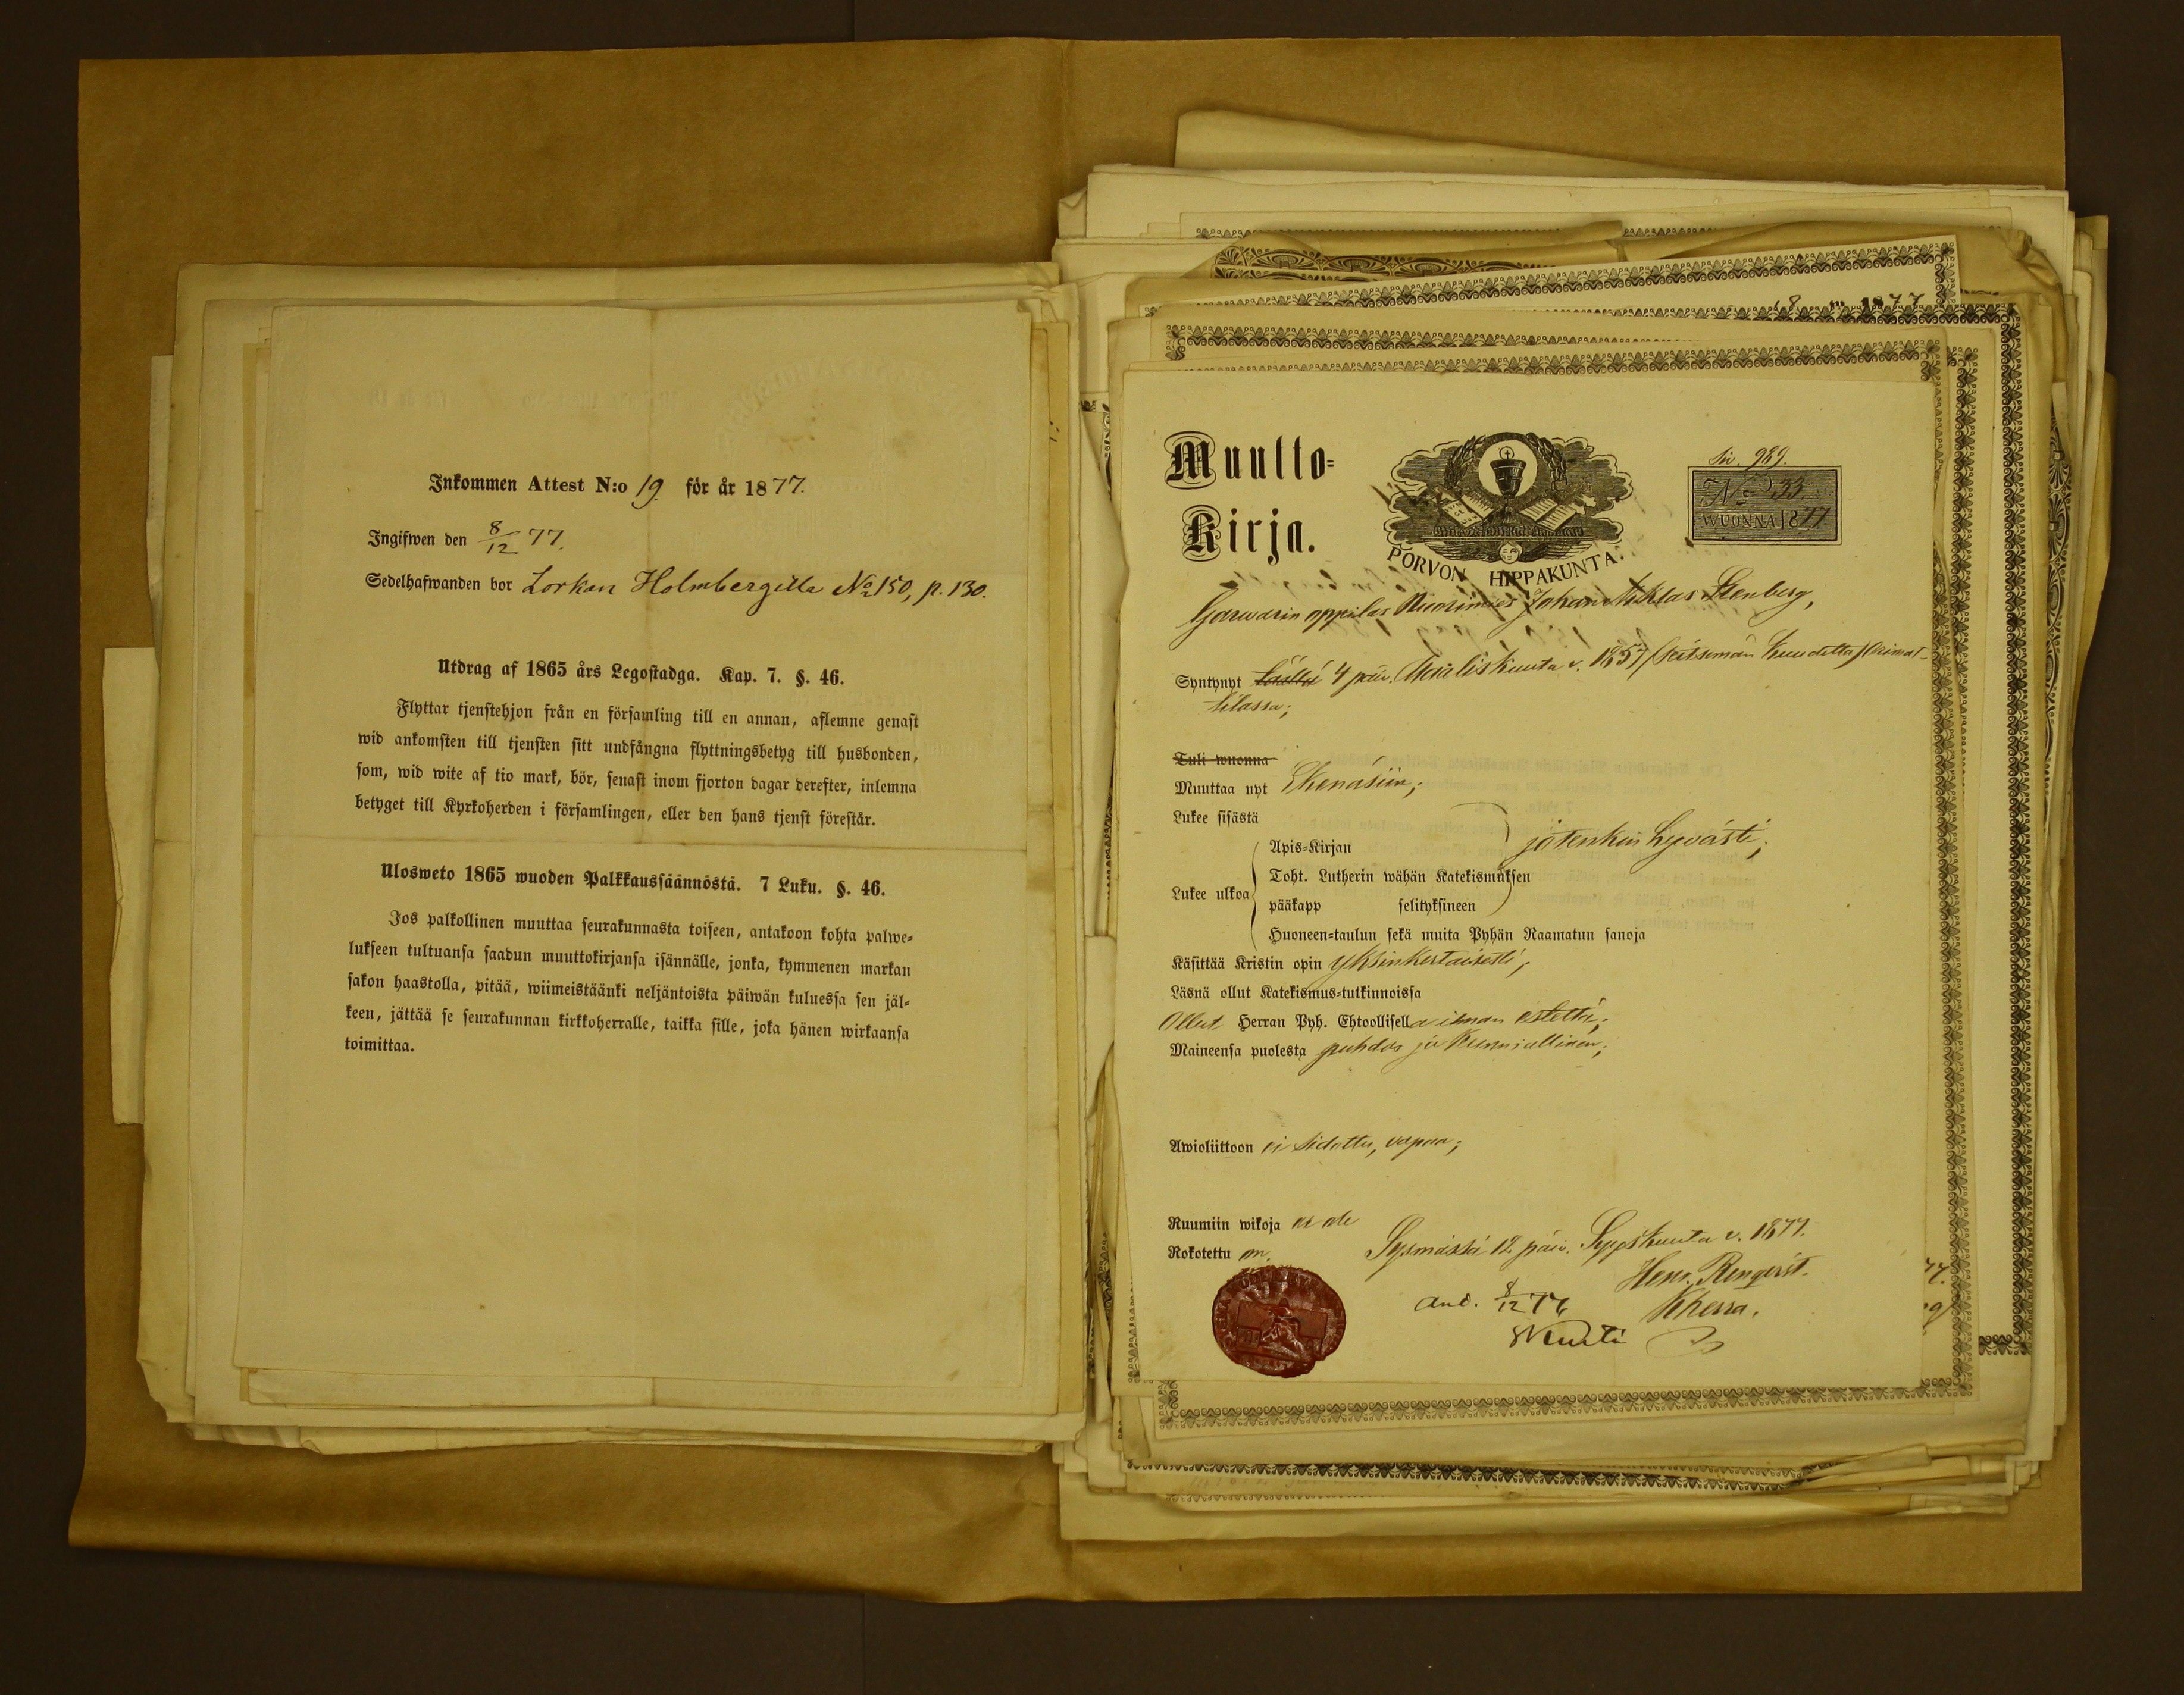 Inkommen Attest N:o 19. för år 1877.
Ingifwen den 8/12 77.
Sedelhafwanden bor Lorkan Holmbergilla No 150, p. 130.
Utdrag af 1865 års Legostadga. Kap. 7. §. 46.
Flyttar tjenstehjon från en församling till en annan, aflemne genast
wid ankomsten till tjensten sitt undfångna flyttningsbetyg till husbonden,
som, wid wite af tio mark, bör, senast inom fjorton dagar derefter, inlemna
betyget till Kyrkoherden i församlingen, eller den hans tjenst förestår.
Ulosweto 1865 wuoden Palkkaussäännöstä. 7 Luku. §. 46.
Jos palkollinen muuttaa seurakunnasta toiseen, antakoon kohta palwe=
lukseen tultuansa saadun muuttokirjansa isännälle, jonka, kymmenen markan
sakon haastolla, pitää, wiimeistäänki neljäntoista päiwän kuluessa sen jäl=
keen, jättää se seurakunnan kirkkoherralle, taikka sille, joka hänen wirkaansa
toimittaa.
18 77
Muutto=
Kirja.
PORVON HIPPAKUNTA.
Siv. 989.
No 33
WUONNA 1877
Garwarin oppilas Nuorimies Johan Niklas Stenberg,
Syntynyt 4 päiv. Maaliskuuta v. 1857 (seitsemän kuudetta)
tilassa;
Tuli wuonna
Muuttaa nyt Ekenäsiin;
Lukee sisästä
Apis=Kirjan jotenkin hyvästi;
Toht. Lutherin wähän Katekismuksen
Lukee ulkoa
pääkapp selityksineen
Huoneen=taulun sekä muita Pyhän Raamatun sanoja
Käsittää Kristin opin yksinkertaisesti;
Läsnä ollut Katekismus=tutkinnoissa
Ollut Herran Pyh. Ehtoollisella ilman estettä;
Maineensa puolesta puhdas ja kunniallinen;
Awioliittoon ei sidottu, vapaa;
Ruumiin wikoja ei ole
Rokotettu on.
Sysmässä 12 päiv. Syyskuuta v. 1877.
Henr. Renqvist.
Kherra.
and. 8/12 77